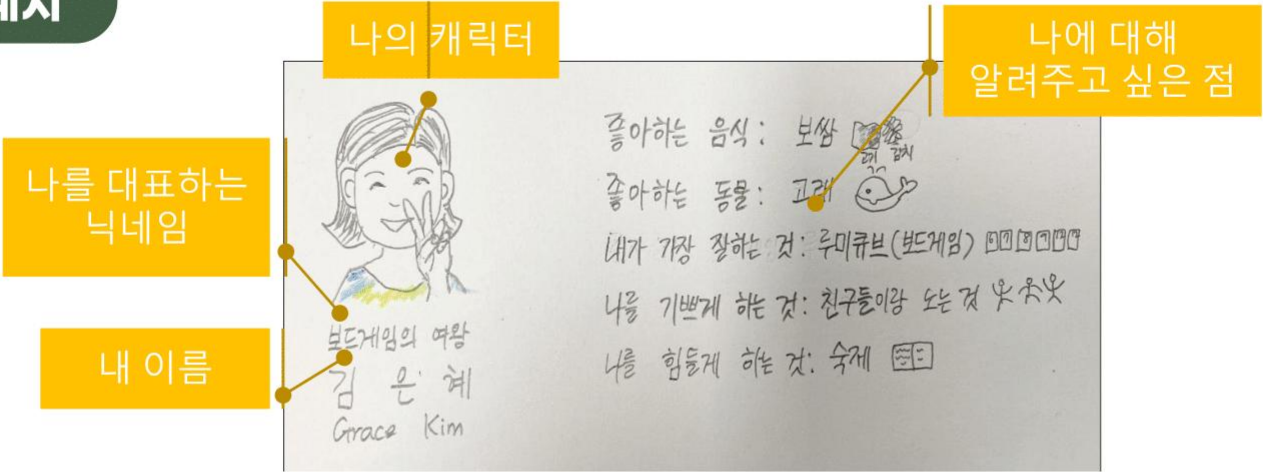 예시
나의 캐릭터
나에 대해
알려주고 싶은 점
나를 대표하는
닉네임
내 이름
보드게임의 여왕
김은혜
Grace Kim
좋아하는 음식: 보쌈
고기 김치
좋아하는 동물: 고래
내가 가장 잘하는 것: 루미큐브(보드게임)
나를 기쁘게 하는 것: 친구들이랑 노는 것
나를 힘들게 하는 것: 숙제